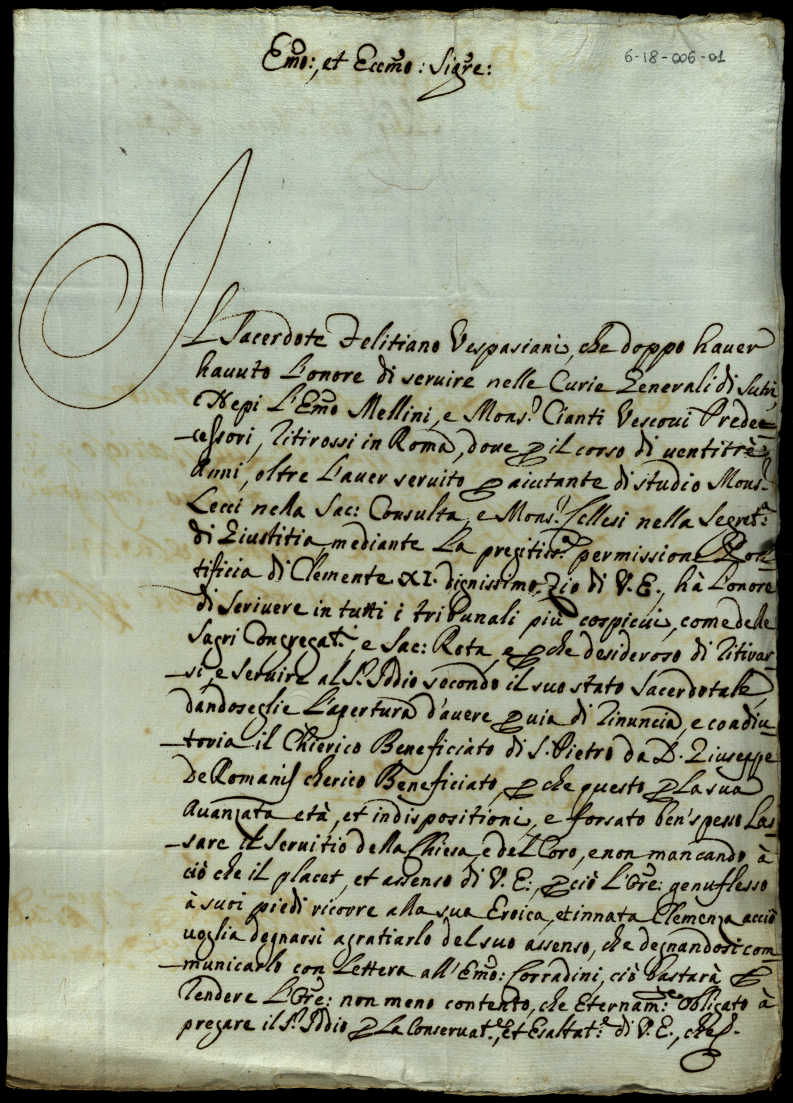 Emo:, et Eccmo: Sigre:
6-18-006-01
IL Sacerdote Felitiano Vespasiani, che doppo haver
havuto L'onore di servire nelle Curie Generali di Sutri,
e Nepi L'Emo Mellini, e Mons.r Cianti Vescovi Prede=
=cessori, ritirossi in Roma, dove p il corso di ventitrè
Anni, oltre L'aver servito p aiutante di studio Mons.r
Lecci nella Sac: Consulta, e Mons.r Cellesi nella Segret.a
di Giustitia, mediante La pregitis.a permissione Pon=
tificia di Clemente XI. dignissimo Zio di V. E., hà L'onore
di scrivere in tutti i tribunali più cospicui, come delle
Sagri Congregat.i, e Sac: Rota, e p che desideroso di ritirar=
=si, e servire al S.r Iddio secondo il suo stato Sacerdotale,
dandoseglie L'apertura d'avere p via di rinuncia, e coadiu=
=toria il Chierico Beneficiato di S. Pietro da D. Giuseppe
De Romanis cherico Beneficiato, p che questo p La sua
Avanzata età, et indispositioni, e forsato ben spesso Las=
=sare il Servitio della Chiesa, e del Coro, e non mancando à
ciò che il placet, et assenso di V. E., p ciò L'Ore: genuflesso
à suoi piedi ricorre alla sua Eroica, et innata Clemenza acciò
voglia degnarsi agratiarlo del suo assenso, che degnandosi com=
=municarlo con Lettera all'Emo: Corradini, ciò bastarà p
rendere L'Ore: non meno contento, che Eternam.te obligato à
pregare il S.r Iddio p La Conservat.e, et Esaltat.e di V. E., che